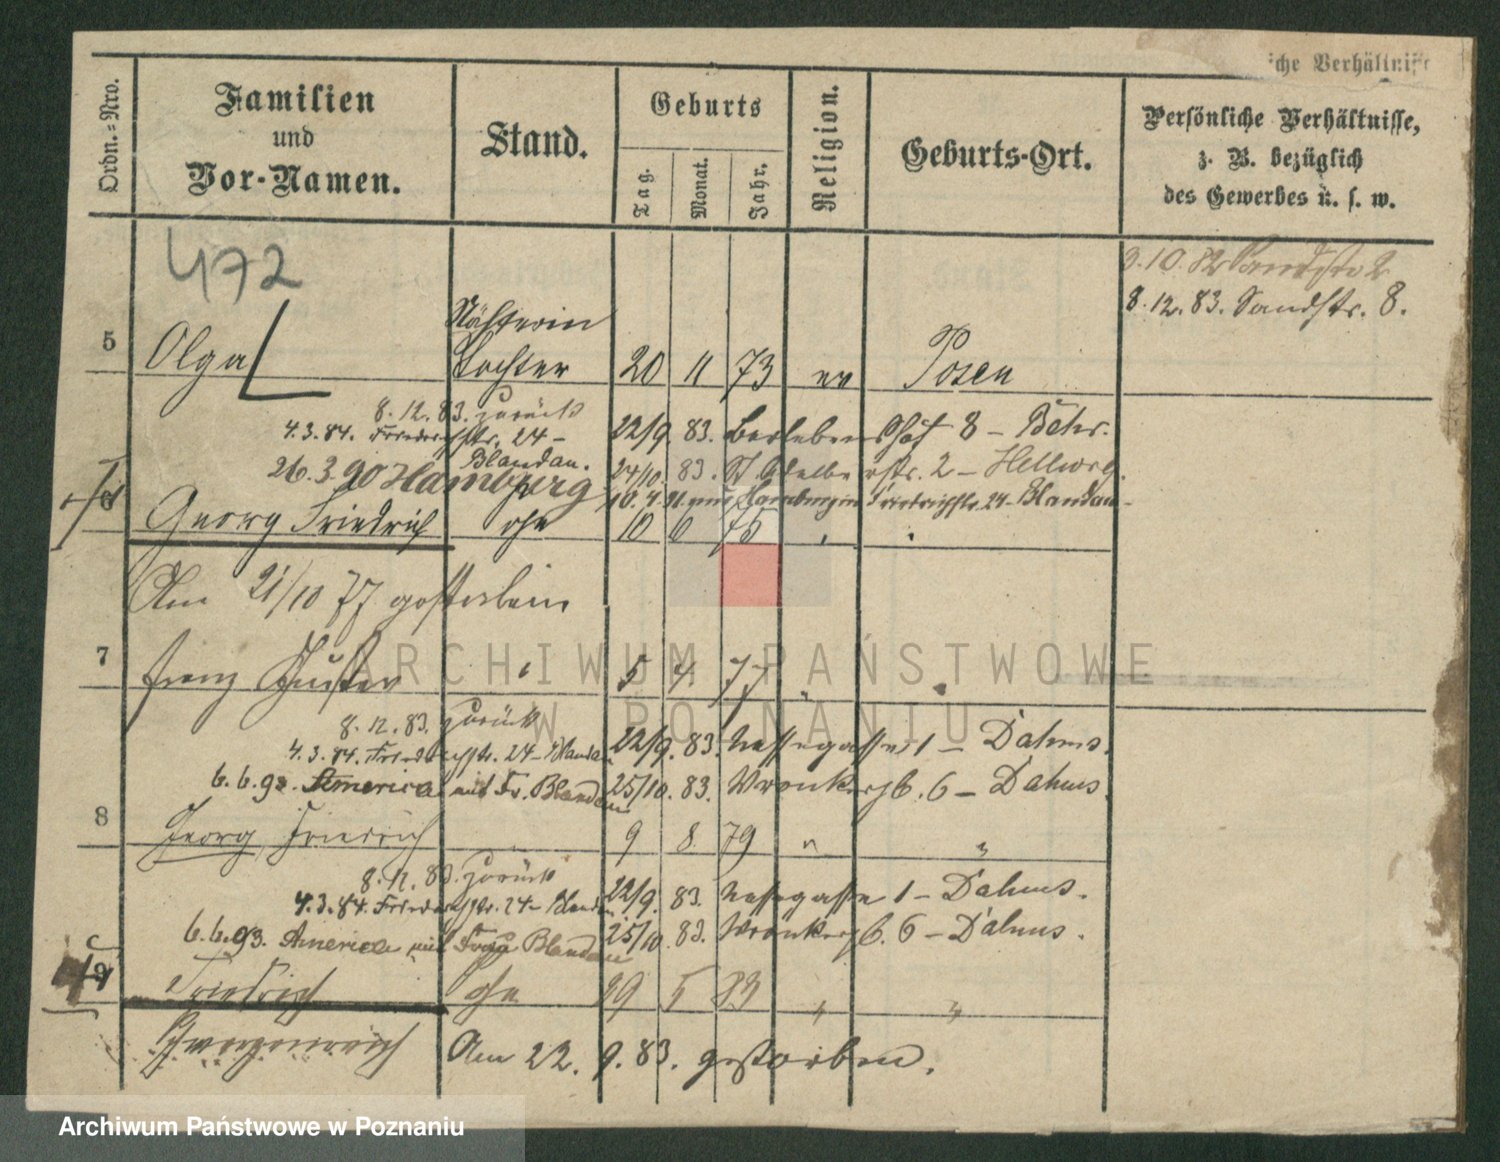 che Verhältnisse
Ordn.=Nro.
Familien
und
Vor-Namen.
Stand.
Geburts
Tag.
Monat.
Jahr.
Religion.
Geburts-Ort.
Persönliche Verhältnisse,
z. B. bezüglich
des Gewerbes u. s. w.
472
3.10.82 Sandstr. 2
8.12.83. Sandstr. 8.
Nähterin
5 Olga Tochter 20 11 73 ev Posen
8.12.83. zurück
4.3.84. Friedrichstr. 24 – 22/9. 83. Berlebenshof 8 –
Blandau.
26.3.90 Hamburg 24/10. 83. St Adalbertstr. 2 – Hellwig.
10.4. Hamburg in Friedrichstr. 24 Blandau
6 Georg Friedrich 10 6 75
Am 21/10 77 gestorben
7 Franz Gustav 5 4 77
8.12.83. zurück
4.3.84. Friedrichstr. 24 – Blandau 22/9. 83. Nassegasse 1 – Dahms.
6.6.93. America mit Fr. Blandau 25/10. 83. Wronkerstr. 6 – Dahms.
8 Georg, Friedrich 9 8 79 " "
8.12.83. zurück
4.3.84. Friedrichstr. 24 – Blandau 22/9. 83. Nassegasse 1 – Dahms.
6.6.93. America mit Frau Blandau 25/10. 83. Wronkerstr. 6 – Dahms.
9 Friedrich 29 5 83 " "
Am 22. 9. 83. gestorben.
ARCHIWUM PAŃSTWOWE
W POZNANIU
Archiwum Państwowe w Poznaniu